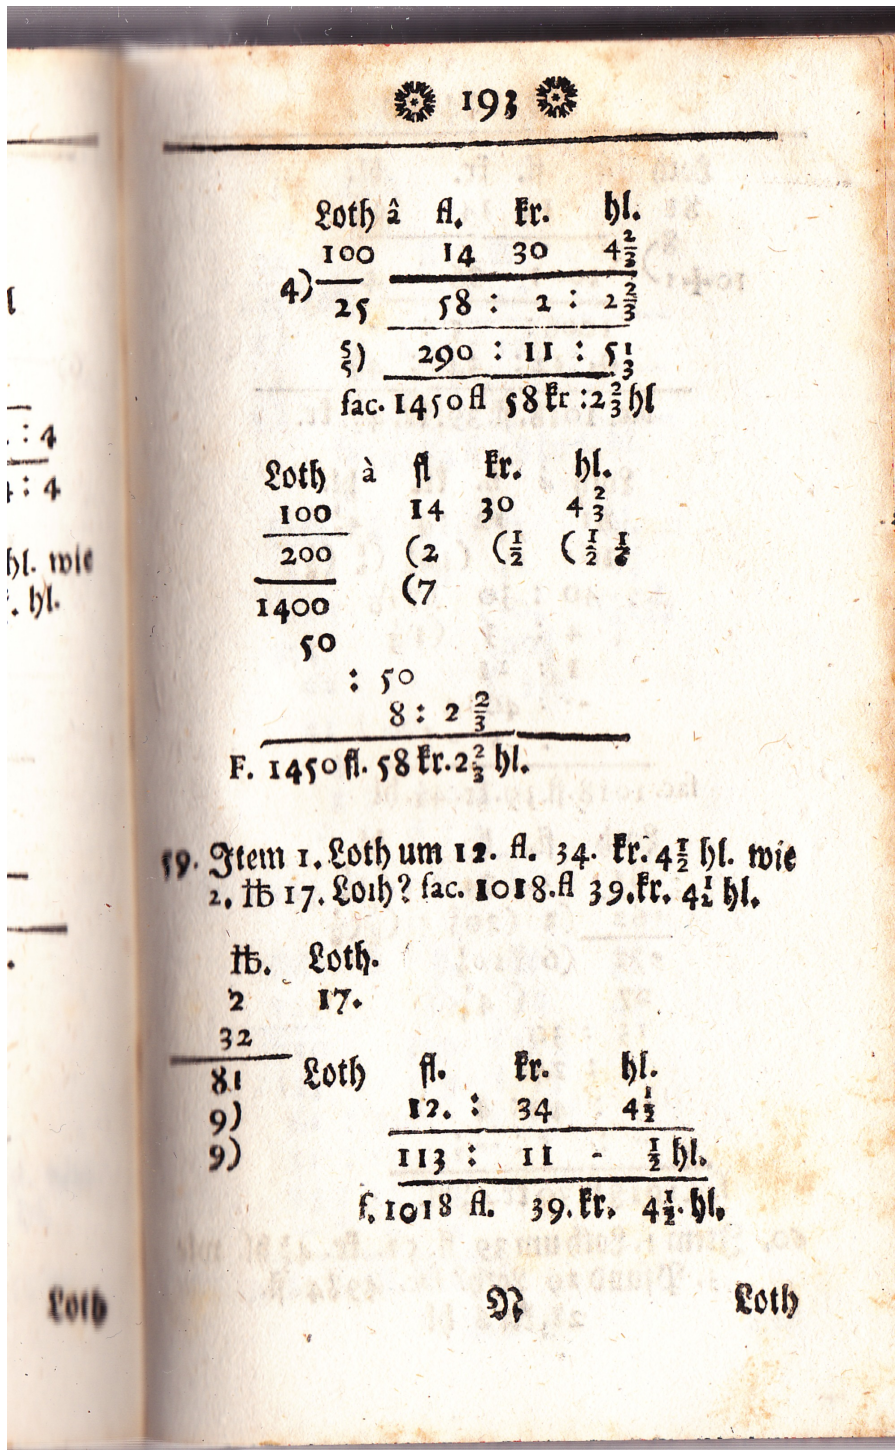 193
Loth â fl. kr. hl.
100 14 30 4 2/3
4)
25 58 : 2 : 2 2/3
5/5) 290 : 11 : 5 1/3
fac. 1450 fl 58 kr : 2 2/3 hl
Loth à fl kr. hl.
100 14 30 4 2/3
200 (2 (1/2 (1/2 1/6
1400 (7
50
: 50
8 : 2 2/3
F. 1450 fl. 58 kr. 2 2/3 hl.
59. Item 1. Loth um 12. fl. 34. kr. 4 1/2 hl. wie
2. ℔ 17. Loth? fac. 1018. fl 39. kr. 4 1/2 hl.
℔. Loth.
2 17.
32
81 Loth fl. kr. hl.
9) 12. : 34 4 1/2
9) 113 : 11 - 1/2 hl.
f. 1018 fl. 39. kr. 4 1/2. hl.
N Loth
: 4
: 4
hl. wie
. hl.
Loth